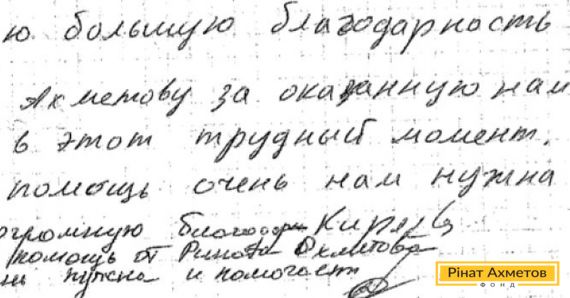 ю большую благодарность
Ахметову за оказанную нам
в этот трудный момент.
помощь очень нам нужна
огромную благодар
помощь от Рината Ахметова
нужна и помогает
Рінат Ахметов
ФОНД